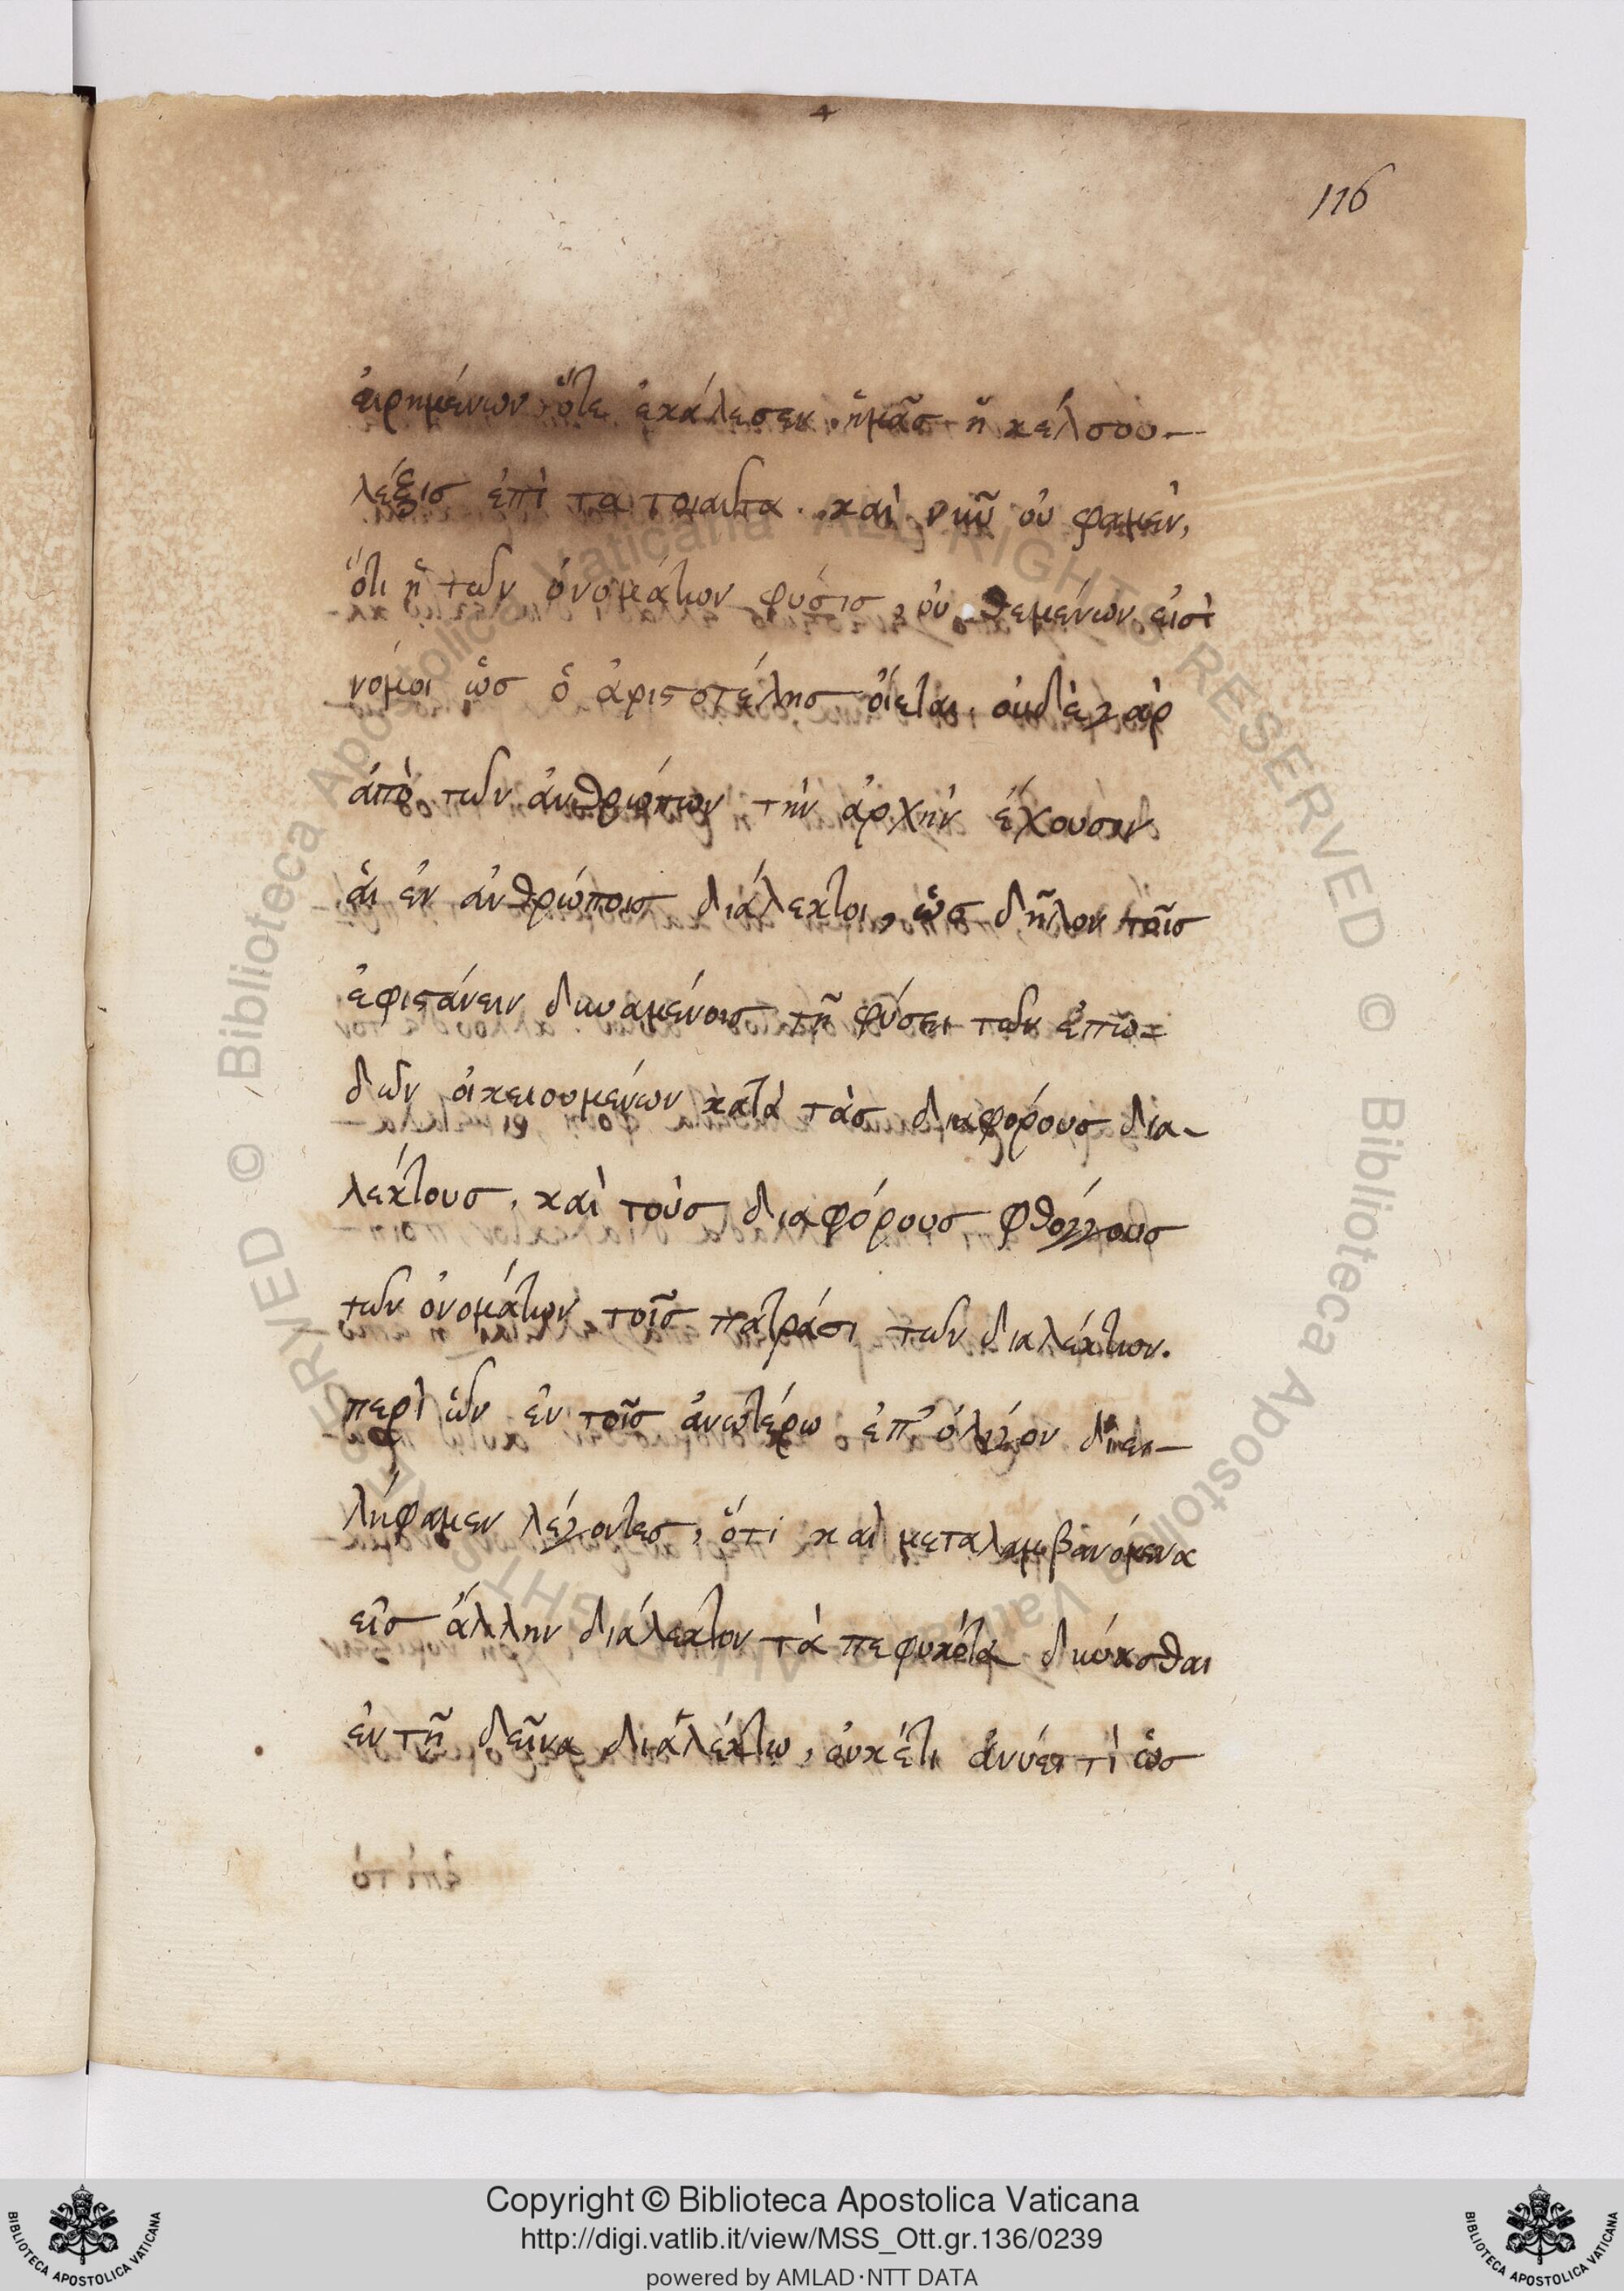 116
εἰρημένων, ὅτε ἐκάλεσεν ἡμᾶς ἡ κέλσου
λέξις ἐπὶ τα τοιαῦτα. καὶ νῦν οὐ φαμὲν,
ὅτι ἡ τῶν ὀνομάτων φύσις, οὐ θεμένων εἰσὶ
νόμοι ὡς ὁ ἀριστοτέλης οἴεται. οὐδὲ γὰρ
ἀπὸ τῶν ἀνθρώπων τὴν ἀρχὴν ἔχουσιν
αἱ ἐν ἀνθρώποις διάλεκτοι, ὡς δῆλον τοῖς
ἐφιστάνειν δυναμένοις τῆ φύσει τῶν ἐπω=
δῶν οἰκειουμένων κατὰ τὰς διαφόρους δια-
λέκτους, καὶ τοὺς διαφόρους φθόγγους
τῶν ὀνομάτων τοῖς πατράσι τῶν διαλέκτων.
περὶ ὧν ἐν τοῖς ἀνωτέρω ἐπ' ὀλίγον διει-
λήφαμεν λέγοντες, ὅτι καὶ μεταλαμβανόμενα
εἰς ἄλλην διάλεκτον τὰ πεφυκότα δύνασθαι
ἐν τῆ δεῖνα διαλέκτω, οὐκέτι ἀνύει τὶ ὡς
© Biblioteca Apostolica Vaticana ALL RIGHTS RESERVED
© Biblioteca Apostolica Vaticana ALL RIGHTS RESERVED
Copyright © Biblioteca Apostolica Vaticana
http://digi.vatlib.it/view/MSS_Ott.gr.136/0239
powered by AMLAD·NTT DATA
BIBLIOTECA APOSTOLICA VATICANA
BIBLIOTECA APOSTOLICA VATICANA